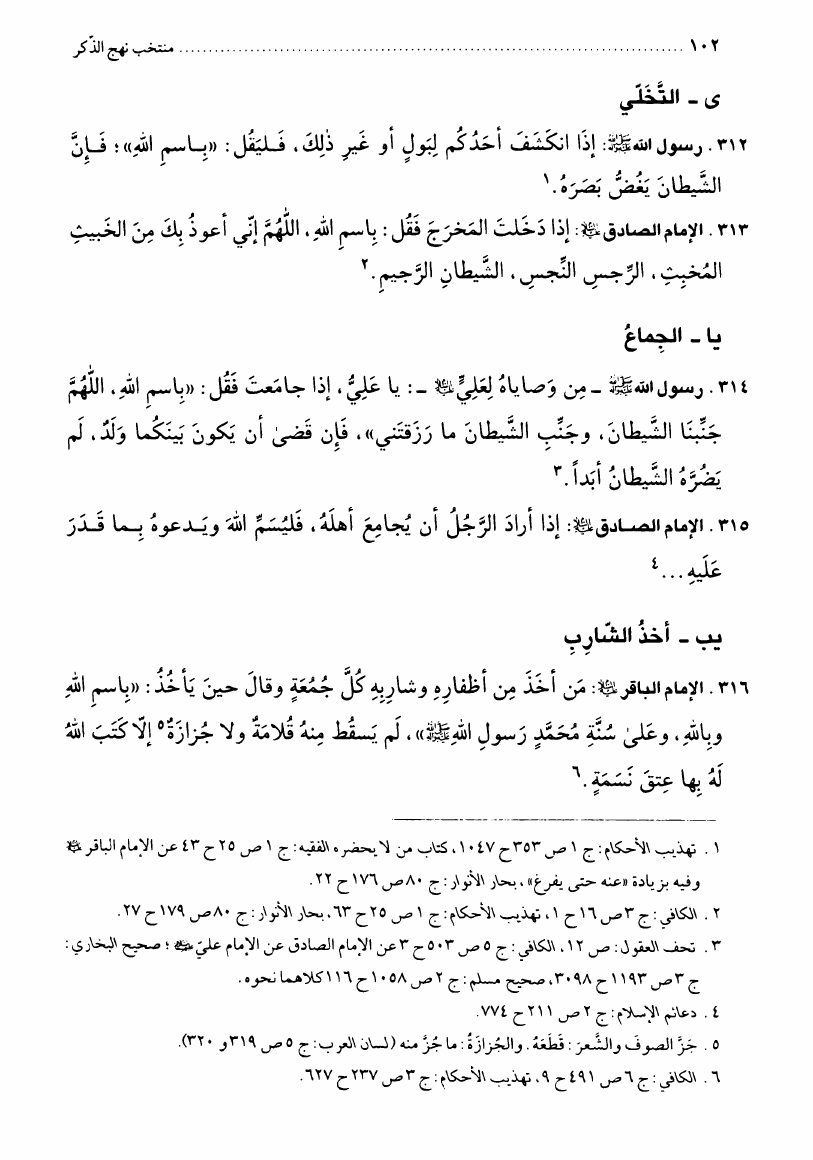 ١٠٢ ................................................................................ منتخب نهج الذّكر
ى ـ التَّخَلّي
٣١٢ . رسول الله ﷺ: إذَا انكَشَفَ أحَدُكُم لِبَولٍ أو غَيرِ ذٰلِكَ، فَليَقُل: «بِاسمِ اللهِ»؛ فَإنَّ
الشَّيطانَ يَغُضُّ بَصَرَهُ.١
٣١٣ . الإمام الصادق ﷺ: إذا دَخَلتَ المَخرَجَ فَقُل: بِاسمِ اللهِ، اللّٰهُمَّ إنّي أعوذُ بِكَ مِنَ الخَبيثِ
المُخبِثِ، الرِّجسِ النِّجسِ، الشَّيطانِ الرَّجيمِ.٢
يا ـ الجِماعُ
٣١٤ . رسول الله ﷺ ـ مِن وَصاياهُ لِعَلِيٍّ ﷺ ـ: يا عَلِيُّ، إذا جامَعتَ فَقُل: «بِاسمِ اللهِ، اللّٰهُمَّ
جَنِّبنَا الشَّيطانَ، وجَنِّبِ الشَّيطانَ ما رَزَقتَني»، فَإن قَضىٰ أن يَكونَ بَينَكُما وَلَدٌ، لَم
يَضُرَّهُ الشَّيطانُ أبَداً.٣
٣١٥ . الإمام الصادق ﷺ: إذا أرادَ الرَّجُلُ أن يُجامِعَ أهلَهُ، فَليُسَمِّ اللهَ ويَدعوهُ بِما قَدَرَ
عَلَيهِ...٤
يب ـ أخذُ الشّارِبِ
٣١٦ . الإمام الباقر ﷺ: مَن أخَذَ مِن أظفارِهِ وشارِبِهِ كُلَّ جُمُعَةٍ وقالَ حينَ يَأخُذُ: «بِاسمِ اللهِ
وبِاللهِ، وعَلىٰ سُنَّةِ مُحَمَّدٍ رَسولِ اللهِ ﷺ»، لَم يَسقُط مِنهُ قُلامَةٌ ولا جُزازَةٌ٥ إلّا كَتَبَ اللهُ
لَهُ بِها عِتقَ نَسَمَةٍ.٦
١ . تهذيب الأحكام: ج ١ ص ٣٥٣ ح ١٠٤٧، كتاب من لا يحضره الفقيه: ج ١ ص ٢٥ ح ٤٣ عن الإمام الباقر ﷺ
وفيه بزيادة «عنه حتى يفرغ»، بحار الأنوار: ج ٨٠ ص ١٧٦ ح ٢٢.
٢ . الكافي: ج ٣ ص ١٦ ح ١، تهذيب الأحكام: ج ١ ص ٢٥ ح ٦٣، بحار الأنوار: ج ٨٠ ص ١٧٩ ح ٢٧.
٣ . تحف العقول: ص ١٢، الكافي: ج ٥ ص ٥٠٣ ح ٣ عن الإمام الصادق عن الإمام عليّ ﷺ؛ صحيح البخاري:
ج ٣ ص ١١٩٣ ح ٣٠٩٨، صحيح مسلم: ج ٢ ص ١٠٥٨ ح ١١٦ كلاهما نحوه.
٤ . دعائم الإسلام: ج ٢ ص ٢١١ ح ٧٧٤.
٥ . جَزَّ الصوفَ والشَّعرَ: قَطَعَهُ. والجُزازَةُ: ما جُزَّ منه (لسان العرب: ج ٥ ص ٣١٩ و ٣٢٠).
٦ . الكافي: ج ٦ ص ٤٩١ ح ٩، تهذيب الأحكام: ج ٣ ص ٢٣٧ ح ٦٢٧.